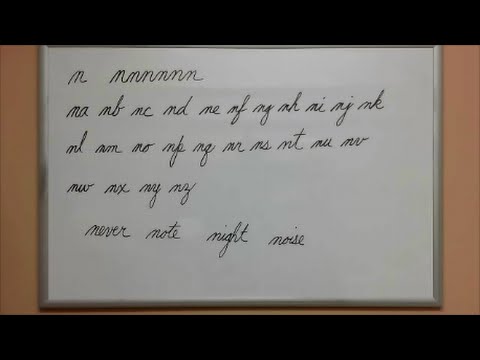 n nnnnnn
na nb nc nd ne nf ng nh ni nj nk
nl nm no np nq nr ns nt nu nv
nw nx ny nz
never note night noise